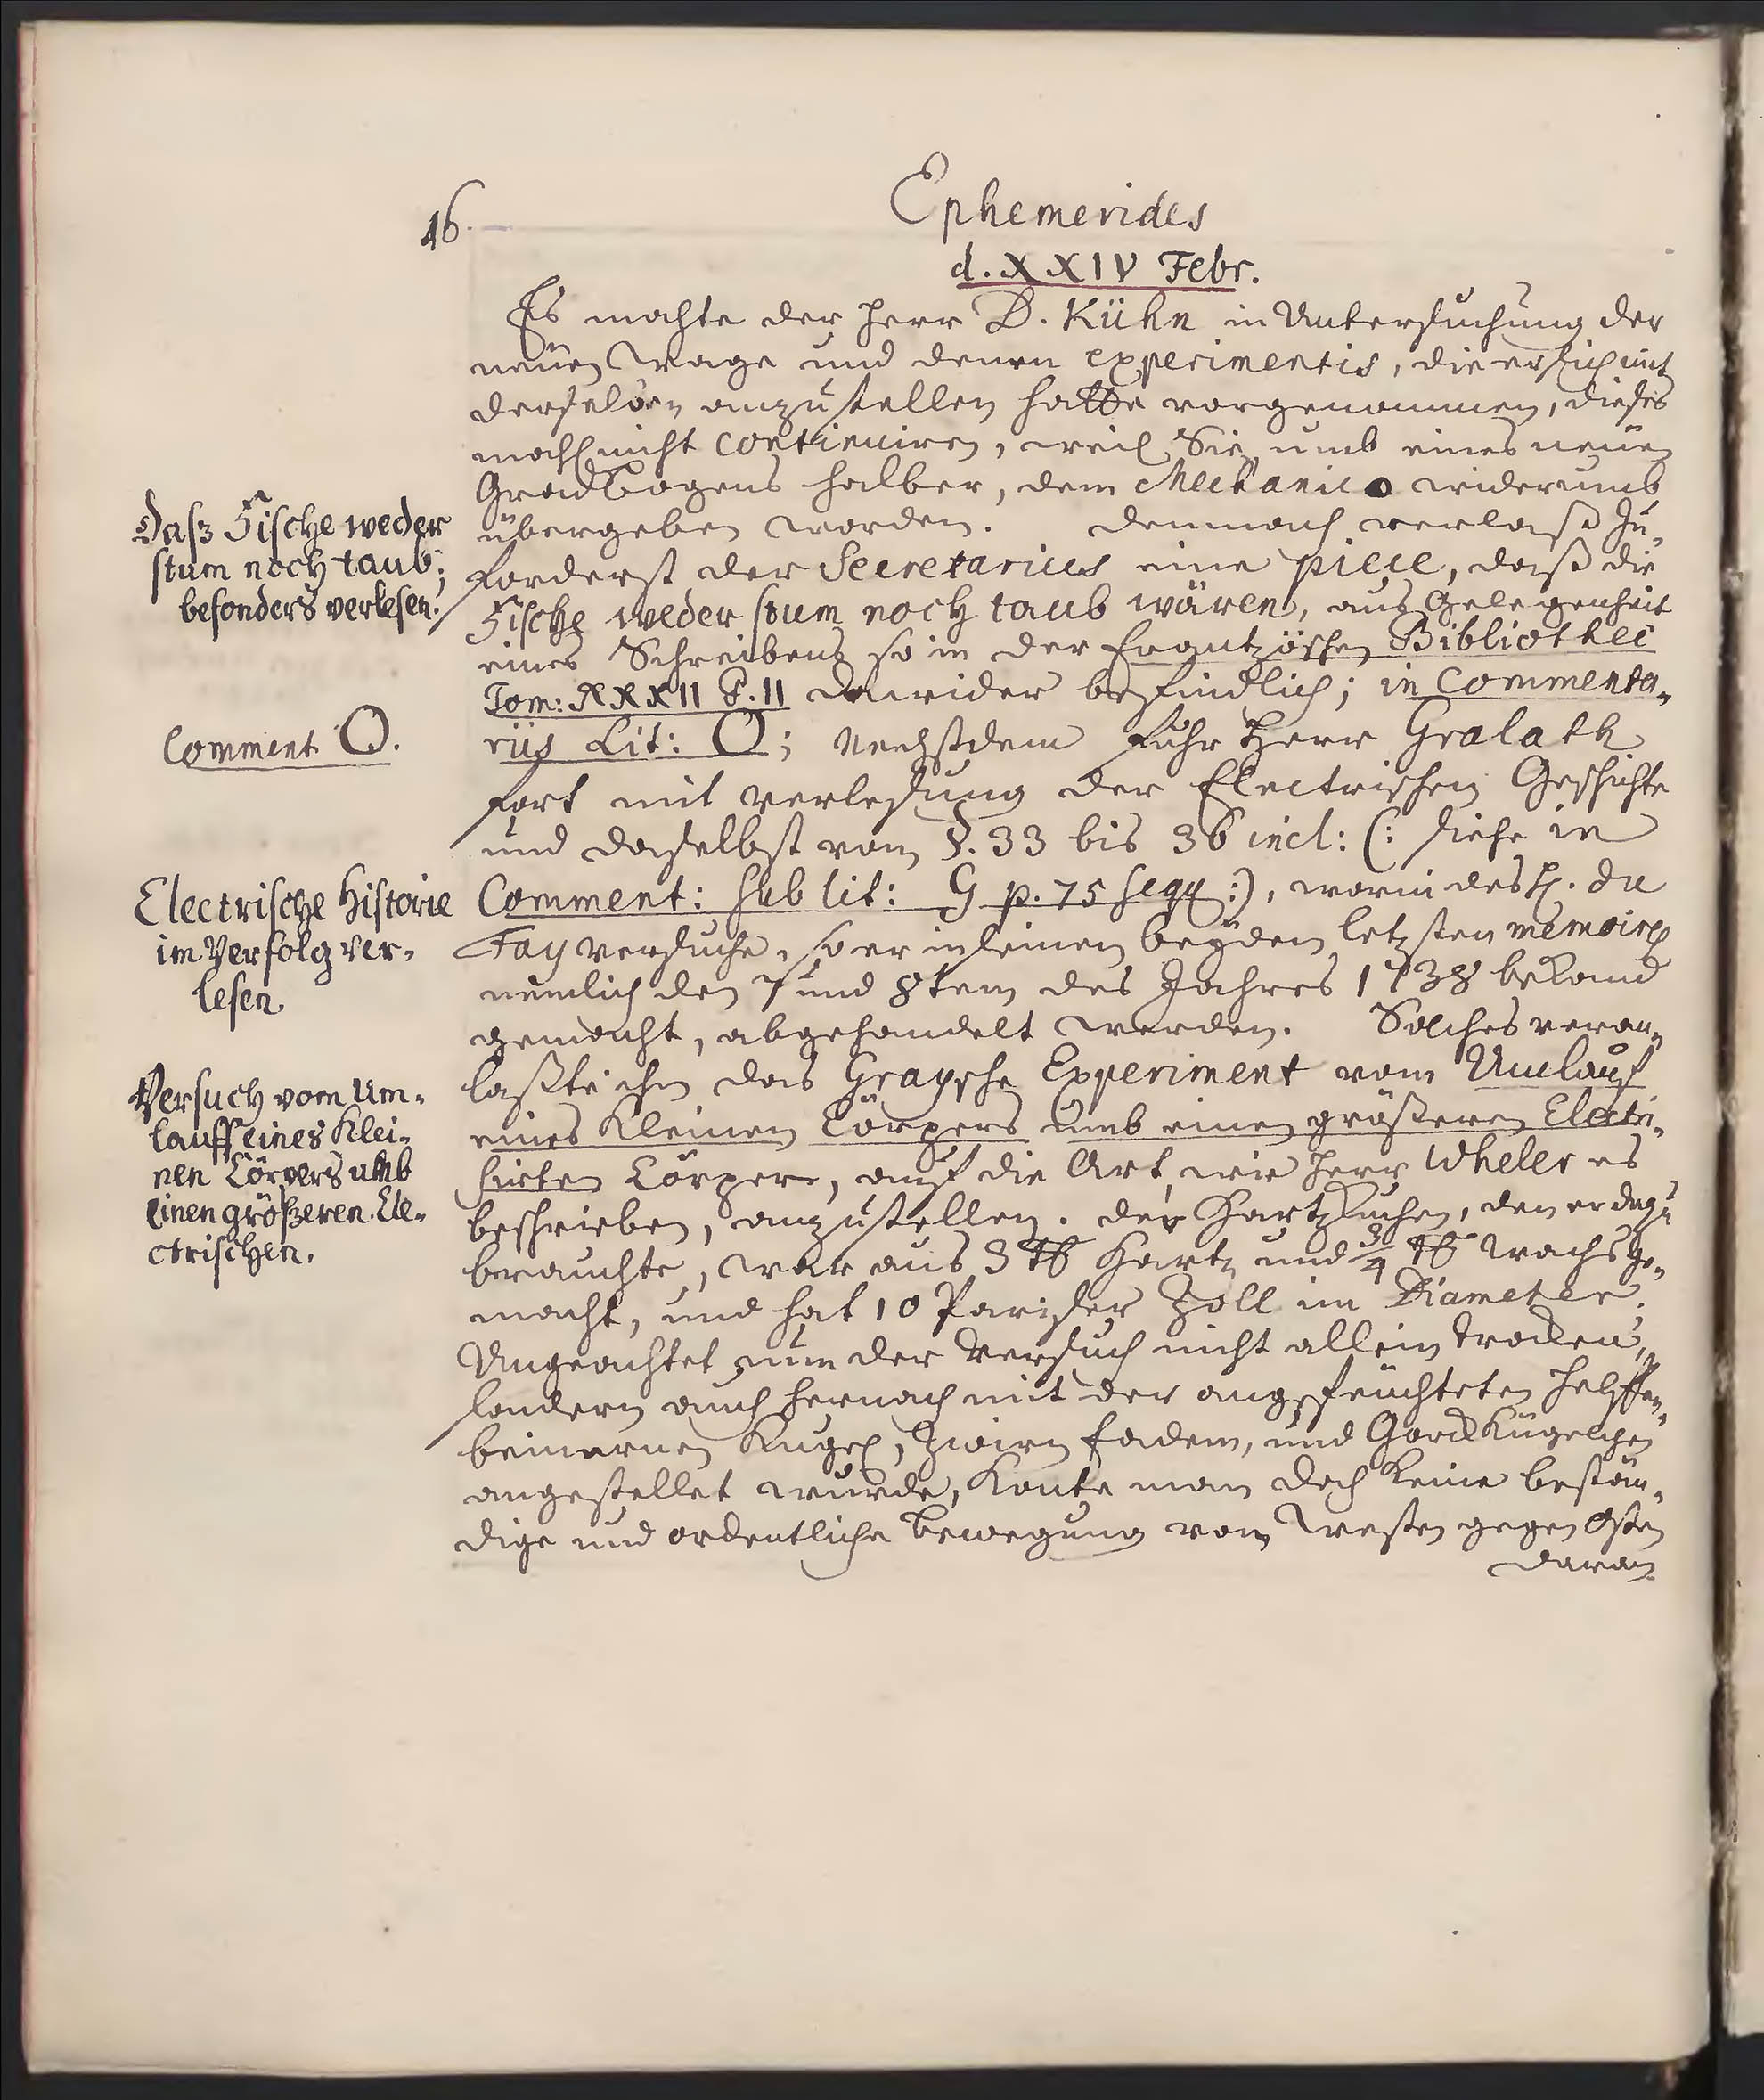 46.
Ephemerides
d. XXIV Febr.
Es mochte der Herr D. Kühn in Untersuchung der
neuen Wage und denen experimentis, die er sich mit
derselben anzustellen hatte vorgenommen, dieses
mahl nicht continuiren, weil Sie, umb eines neuen
Gradbogens halber, dem Mechanico widerumb
übergeben worden. Demnach verlaß zu„
forderst der Secretarius eine piece, daß die
Fische weder stum noch taub wären, aus Gelegenheit
eines Schreibens so in der Frantzöschen Bibliothec
Tom: XXXII P. II dawider befindlich; in Commenta„
riis Lit: O; Nechstdem fuhr Herr Gralath
fort mit verlesung der Electrischen Geschichte
und daselbst vom §. 33 bis 36 incl: (: siehe in
Comment: sub lit: G p. 75 seqq :), worin des H. du
Fay versuche, so er in seinen beyden letzsten memoires
nemlich den 7 und 8tem des Jahres 1738 bekand
gemacht, abgehandelt werden. Solches veran„
laßte ihn das Graysche Experiment vom Umlauf
eines kleinen Cörpers umb einen größeren Electri„
sirten Cörper, auf die Art, wie Herr Wheler es
beschrieben, anzustellen. der Hartzkuchen, den er dazu
brauchte, war aus 3 ℔ Hartz und 3/4 ℔ Wachs ge„
macht, und hat 10 Pariser Zoll im Diameter.
Ungeachtet nun der Versuch nicht allein trocken,
sondern auch hernach mit der angefeuchteten helffen„
beinernen Kugel, Zwirn fadem, und Korckkügelchen
angestellet wurde, konte man doch keine bestän„
dige und ordentliche bewegung von Westen gegen Osten
daran
Daß Fische weder
stum noch taub;
besonders verlesen.
Comment O.
Electrische Historie
im Verfolg ver„
lesen.
Versuch vom Um„
lauff eines Klei„
nen Cörpers umb
einen größeren Ele„
ctrischen.